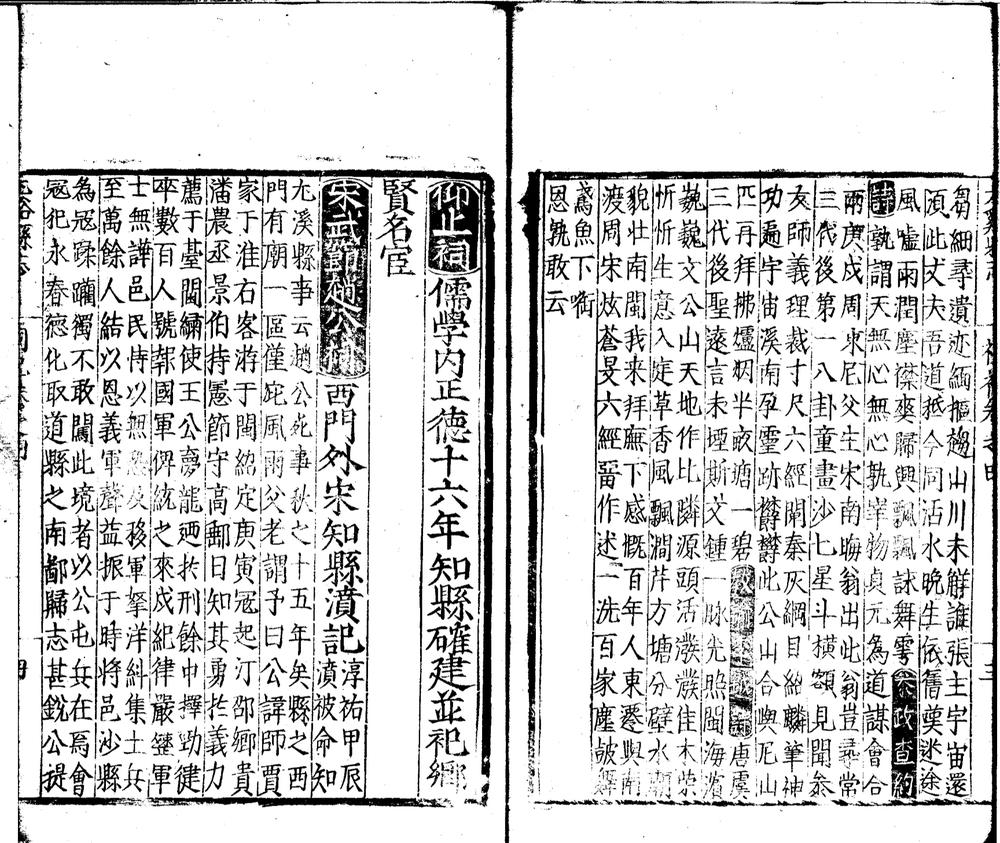 芻細尋遺迹緬摳趨山川未觧誰張主宇宙還
湏此丈夫吾道秪今同活水晚生依舊奠迷途
風嘘雨潤塵襟爽歸興飄飄詠舞雩 叅政查約
詩孰謂天無心無心孰宰物貞元為道謀會合
兩庚戌周東尼父生宋南晦翁出此翁豈尋常
三代後第一八卦童畫沙七星斗橫額見聞叅
友師義理裁寸尺六經開秦灰綱目絕麟筆神
功遍宇宙溪南孕靈跡欝欝此公山合與尼山
匹再拜拂爐烟半畝塘一碧 唐虞
三代後聖遠言未堙斯文鍾一脉光照閩海濱
巍巍文公山天地作比隣源頭活潑潑佳木榮
忻忻生意入庭草香風飄澗芹方塘分璧水廟
貌壮南閩我来拜廡下感慨百年人東遷與南
渡周宋炫蒼旻六經當作述一洗百家塵皷舞
鳶魚下
恩孰敢云
仰止祠 儒學内正德十六年知縣確建並祀鄉
賢名宦
宋武節趙公祠 西門外宋知縣濆記 淳祐甲辰濆被命知
尤溪縣事云趙公死事秋之十五年矣縣之西
門有廟一區僅庇風雨父老謂予曰公諱師賈
家于淮右客游于閩紹定庚寅冠起汀邵鄉貴
潘農丞景伯持憲節守高郵日知其勇扵義力
薦于臺閫繡使王公夣龍廼扵刑餘中擇勁健
卒數百人號報國軍俾統之來戍紀律嚴軍
士無譁邑民恃以無恐及移軍拏洋糾集土兵
至萬餘人結以恩義軍聲益振于時將邑沙縣
為冦蹂躪獨不敢闖此境者以公屯兵在焉會
冦犯永春德化取道縣之南鄙歸志甚銳公提